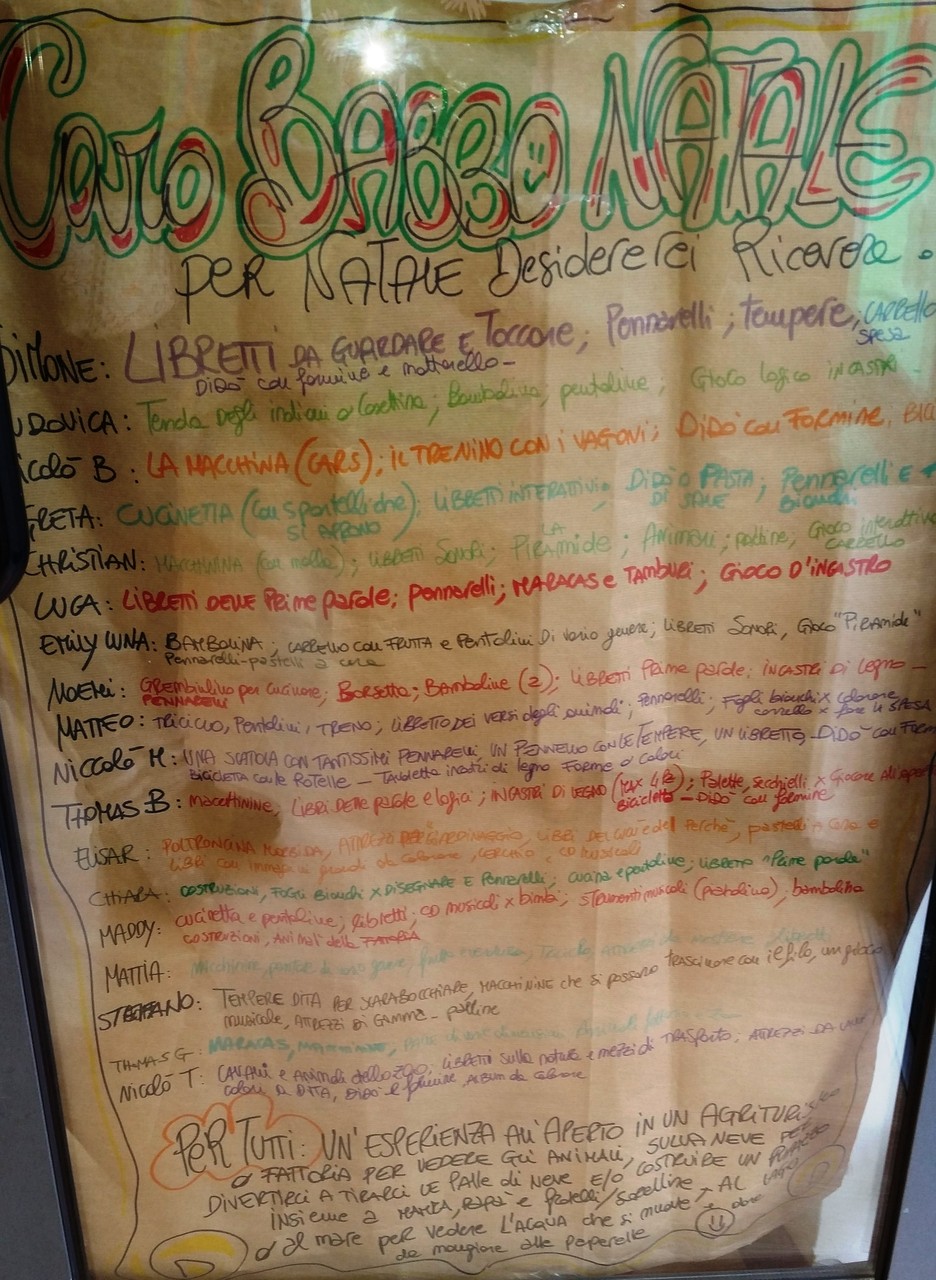 Caro BABBO NATALE
PER NATALE Desidererei Ricevere
SIMONE: LIBRETTI DA GUARDARE E Toccare; Pennarelli; tempere, CARRELLO SPESA
DIDÒ con formine e mattarello-
LUDOVICA: Tenda degli indiani o Casettina; Bambolina, pentoline; Gioco logico INCASTRI-
NICCOLÒ B: LA MACCHINA (CARS); IL TRENINO CON I VAGONI; DIDÒ con FORMINE, BICI
GRETA: CUCINETTA (con sportelli che SI APRONO); LIBRETTI INTERATTIVI, DIDÒ O PASTA DI SALE; Pennarelli E
Bianchi
CHRISTIAN: MACCHININA (con molla); LIBRETTI SONORI; LA PIRAMIDE; ANIMALI; palline; Gioco interattivo
CARRELLO
LUCA: LIBRETTI DELLE PRIME PAROLE; Pennarelli; MARACAS E TAMBURI; GIOCO D'INCASTRO
EMILY LUNA: BAMBOLINA; CARRELLO con FRUTTA e Pentolini Di vario genere; LIBRETTI SONORI, Gioco "PIRAMIDE"
Pennarelli-pastelli a cera
NOEMI: GREMbiulino per cucinare; Borsetta; Bamboline (2); LIBRETTI Prime parole; INCASTRI DI Legno-
PENNARELLI
MATTEO: TRICICLO, Pentolini, TRENO; LIBRETTO DEI VERSI degli animali; Pennarelli; Fogli bianchi x colorare
carrello x fare la SPESA
NICCOLÒ M: UNA SCATOLA CON TANTISSIMI PENNARELLI, UN PENNELLO CON LE TEMPERE, UN LIBRETTO-DIDÒ con FORM
BICICLETTA con le ROTELLE - Tavoletta incastri di legno Forme o colori
THOMAS B: Macchinine, LIBRI DELLE parole e logici; INCASTRI DI LEGNO; Palette, secchielli x Giocare All'aperto
Bicicletta - DIDÒ con formine
ELISAR: POLTRONCINA MORBIDA, ATTREZZI GIARDINAGGIO, LIBRI DEI perchè, pastelli a cera e
LIBRI con immagini grandi da colorare, CERCHIO, CD musicali
CHIARA: COSTRUZIONI, FOGLI Bianchi x DISEGNARE E Pennarelli; cucina e pentoline; LIBRETTO "Prime parole"
MADDY: cucinetta e pentoline; libretti; CD musicali x bimbi; STRUMENTI musicali (pianolina); bambolina
COSTRUZIONI, ANIMALI della FATTORIA
MATTIA: Macchinine,
STEFANO: TEMPERE DITA PER SCARABOCCHIARE, MACCHININE che si possono trascinare con il filo, un gioco
musicale, ATTREZZI DI GOMMA - palline
THOMAS G: MARACAS,
NICOLÒ T: CAVALLI e ANIMALI dello ZOO, LIBRETTI sulla natura e mezzi di TRASPORTO, ATTREZZI DA
colori A DITA, DIDÒ e formine, ALBUM da colorare
PER TUTTI: UN'ESPERIENZA ALL'APERTO IN UN AGRITURISMO
O FATTORIA PER VEDERE GLI ANIMALI, SULLA NEVE PER
DIVERTIRCI A TIRARCI LE PALLE DI NEVE E/O COSTRUIRE UN PUPAZZO
INSIEME A MAMMA, PAPÀ E fratelli/sorelline - AL LAGO
O al mare per vedere L'ACQUA che si muove e dare
da mangiare alle paperelle